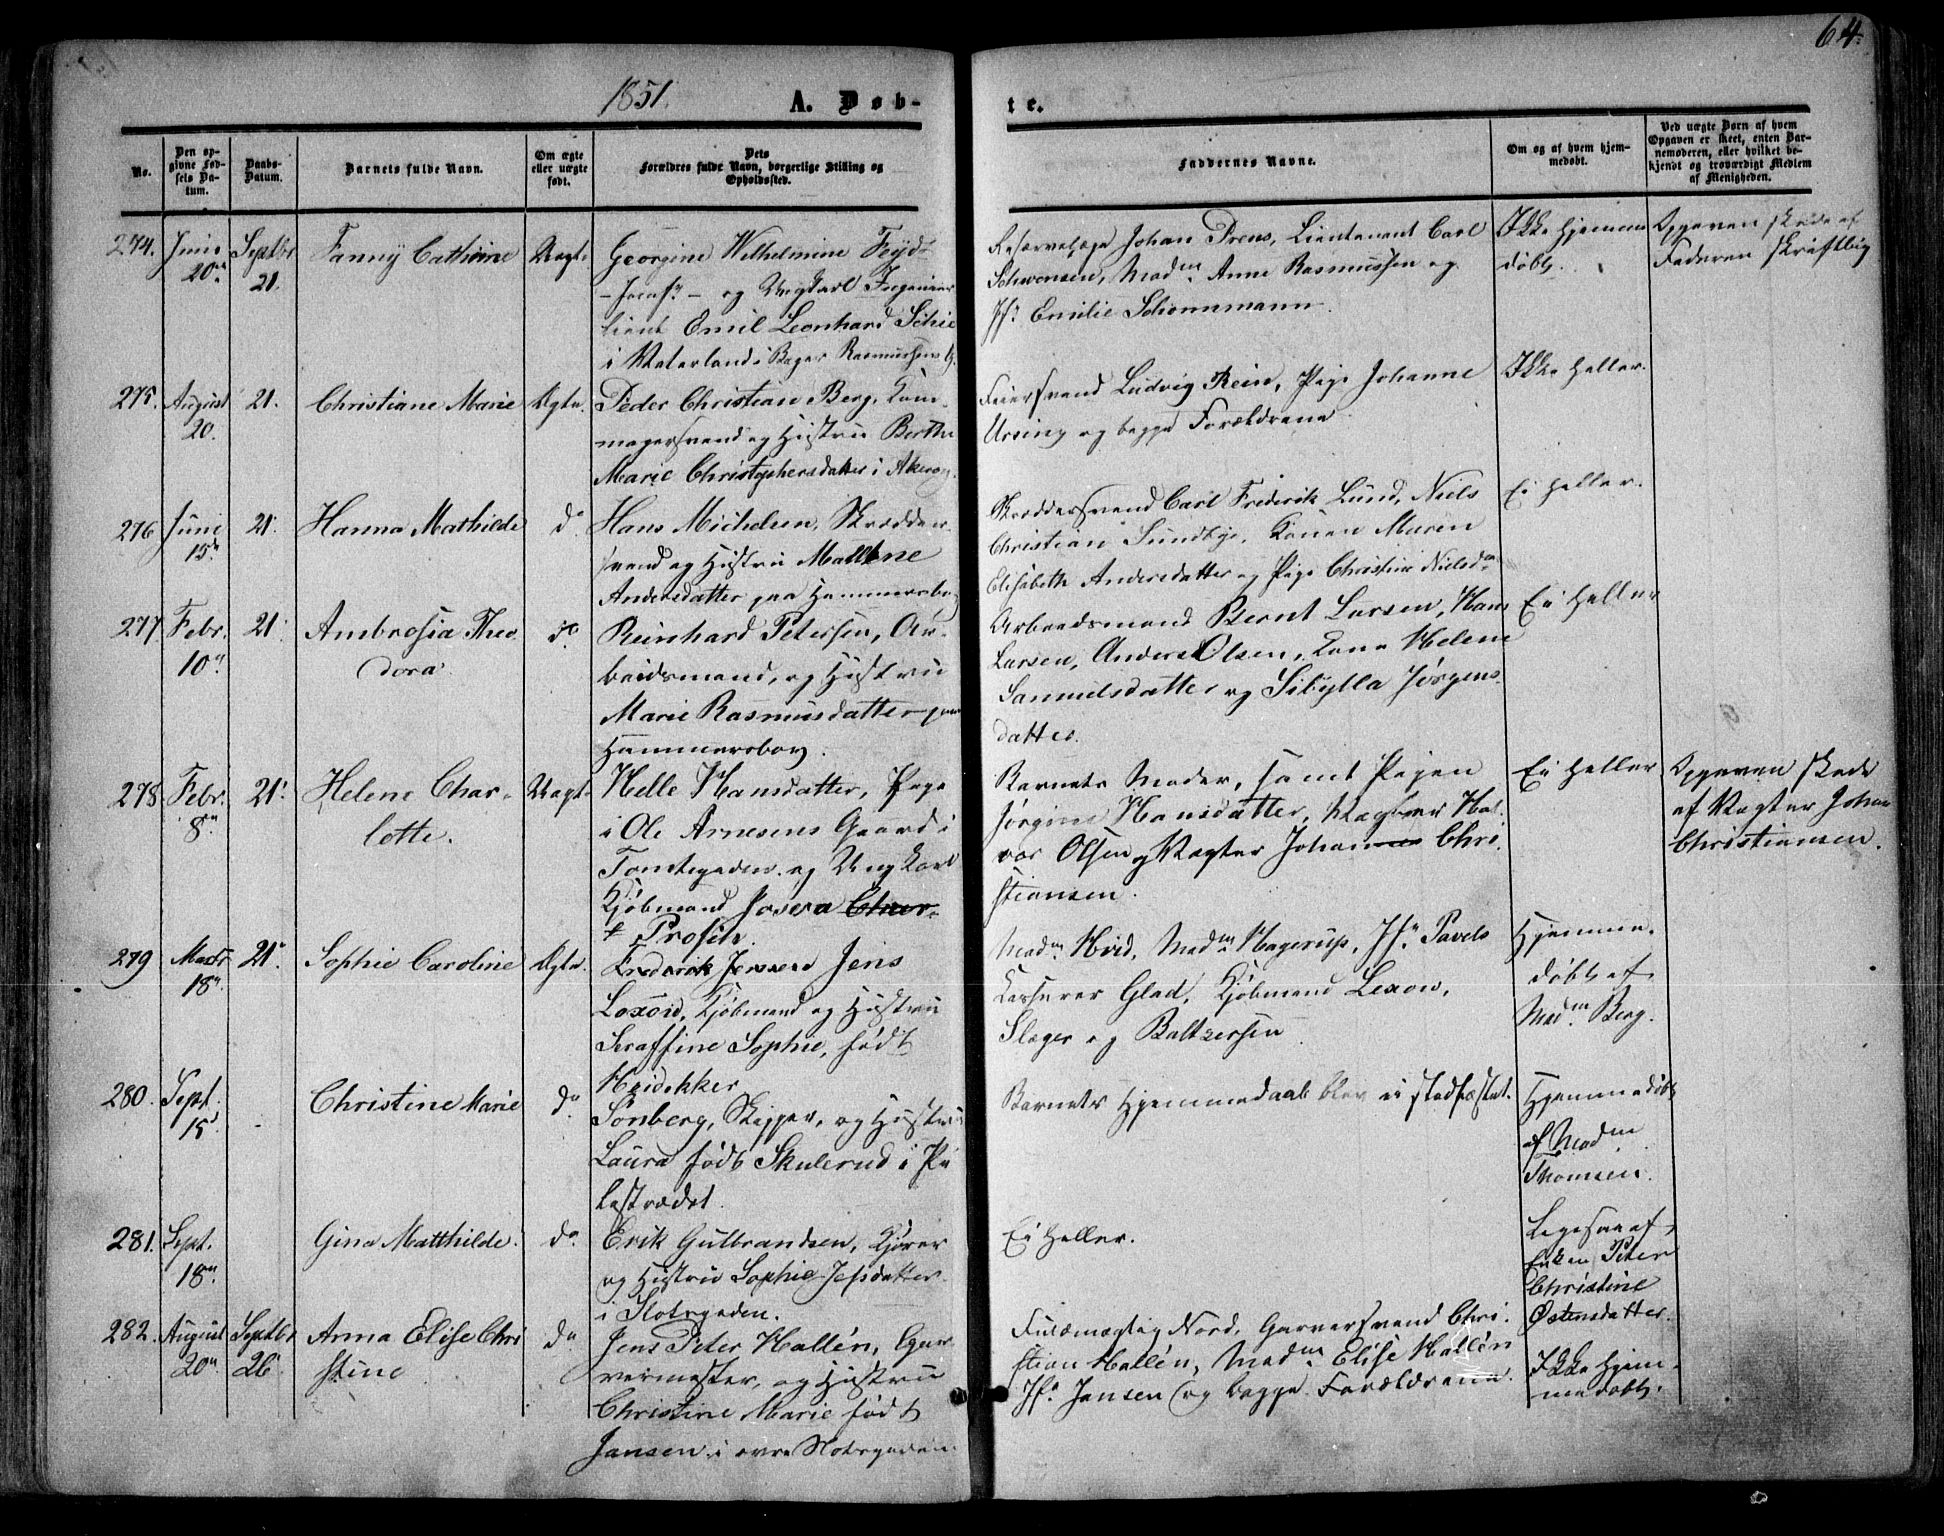 64.
1851.
A. Døb-
te.
No.
Den op-
givne Fød-
sels Da-
tum.
Daabs-
Datum.
Barnets fulde Navn.
Om ægte
eller uægte
født.
Dets
Forældres fulde Navn, borgerlige Stilling og
Opholdssted.
Faddernes Navne.
Om og af hvem hjem-
medøbt.
Ved uægte Børn af hvem
Opgaven er skeet, enten Bar-
nemoderen, eller hvilket be-
kjendt og troværdigt Medlem
af Menigheden.
274. Juni 20de Septbr 21. Fanny Cathrine Uægte
Georgine Wilhelmine Feyd-
og Ungkarl Ingenieur
Lieut Emil Leonhard Schie
i Vaterland i Bager Rasmussens G.
Reservelæge Johan Prens, Lieutenant Carl
Schwensen, Madm Anne Rasmussen og
Jfr Emilie Schønnemann
Ikke hjemme
døbt.
Opgaven skede af
Faderen skriftlig
275. August 20. 21. Christiane Marie Ægte.
Peder Christian Berg, Kom-
magersvend og Hustru Berthe
Marie Christophersdatter i Akersg.
Feiersvend Ludvig Rein, Pige Johanne
Ursing og begge Forældrene
Ikke heller.
276 Juni 15de 21. Hanna Mathilde do
Hans Michelsen, Skrædder-
svend og Hustru Mallene
Andersdatter paa Hammersbog
Skræddersvend Carl Frederik Lund, Niels
Christian Sundbye, Konen Maren
Elisabeth Andersdatter og Pige Christine Nielsd.
Ei heller.
277 Febr. 10de 21. Ambrosia Theo
dora. do.
Reinhard Petersen, Ar-
beidsmand, og Hustru
Marie Rasmusdatter paa
Hammersborg.
Arbeidsmand Bernt Larsen, Hans
Larsen, Anders Olsen, Kone Helene
Samuelsdatter og Sibylla Jørgens
datter.
Ei heller
278 Febr. 8de 21. Helene Char-
lotte. Uægte
Helle Hansdatter, Pige
i Ole Arnesens Gaard i
Tomtegaden og Ungkarl
Kjøbmand Josera
Profin.
Barnets Moder, samt Pigen
Jørgine Hansdatter, Vægter Hal-
vor Olsen og Vægter Johannes Chri-
stiansen.
Ei heller
Opgaven skede
af Vægter Johan
Christiansen.
279 Marts 18de 21. Sophie Caroline Ægte.
Frederik Jenssen Jens
Loxow, Kjøbmand og Hustru
Seraffine Sophie, født
Heidekker
Madm Hvid, Madm Hagerup, Jfr Pavels
Kasserer Glad, Kjøbmand Lexow,
Slager og Baltzersen
Hjemme-
døbt af
Madm Berg.
280. Sept. 15de Christine Marie do
Sonberg, Skipper, og Hustru
Laura født Skulerud i Pi
lestrædet.
Barnets Hjemmedaab blev ei stadfæstet.
Hjemmedøbt
af Madm
Thomsen.
281. Sept. 18de Gina Matthilde. do
Erik Gulbrandsen, Kjører
og Hustru Sophie Jessdatter
i Slotsgaden.
Ei heller.
Ligesaa af
Enken Peter
Christine
Østensdatter.
282. August 20de Septbr 26. Anna Elise Chri
stine do
Jens Peter Hallén, Gar-
vermester, og Hustru
Christine Marie født
Jansen i øvre Slotsgaden
Fuldmægtig Nord, Garversvend Chri-
stian Hallén, Madm Elise Hallén
Jfr Jansen og begge Forældrene.
Ikke hjem-
medøbt.